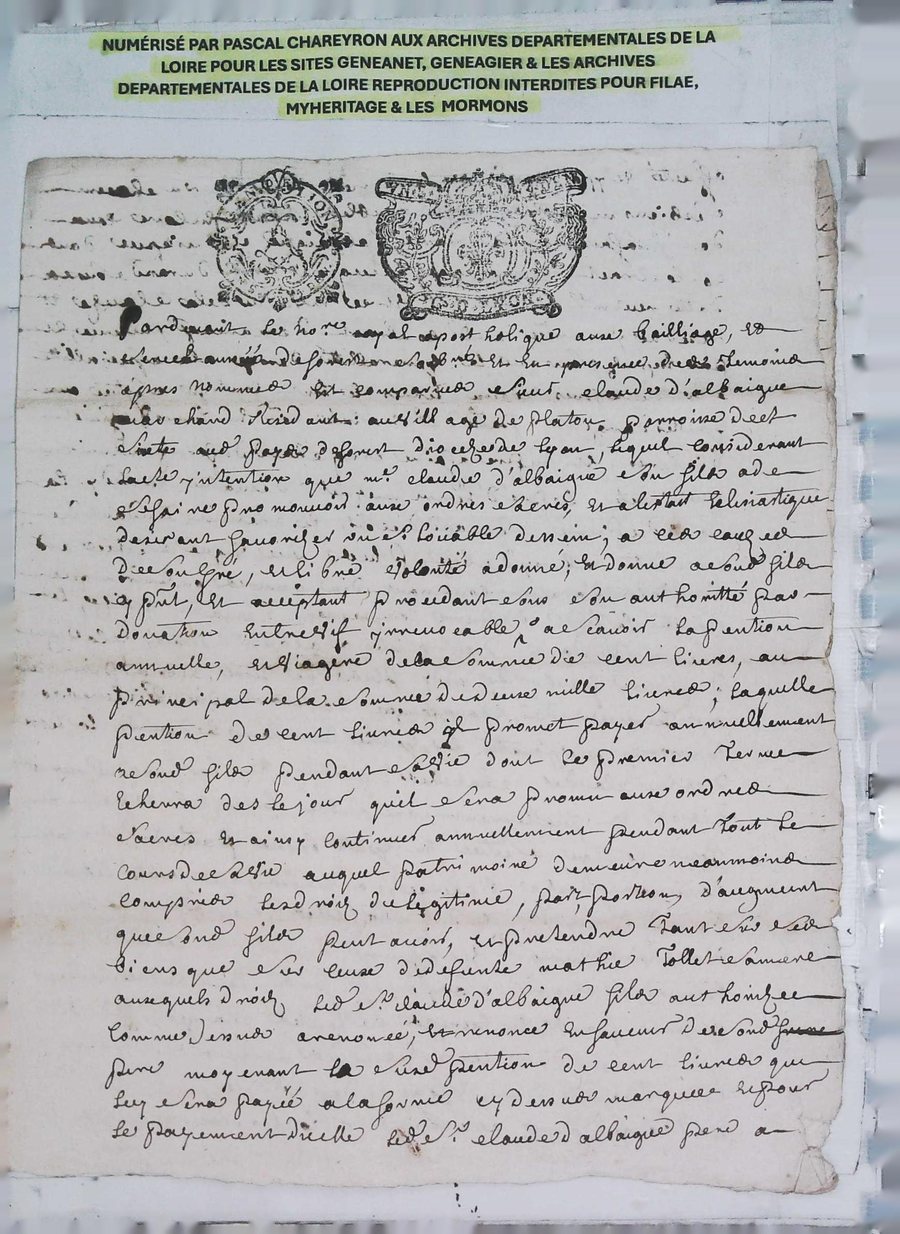 NUMÉRISÉ PAR PASCAL CHAREYRON AUX ARCHIVES DEPARTEMENTALES DE LA
LOIRE POUR LES SITES GENEANET, GENEAGIER & LES ARCHIVES
DEPARTEMENTALES DE LA LOIRE REPRODUCTION INTERDITES POUR FILAE,
MYHERITAGE & LES MORMONS
LYON
Pardevant le no.re royal apostholique aux bailliage, et
et en presence des temoins
apres nommes est comparus sieur claude d'albaigue
marchand residant au village de platon parroisse de
au pays de forest diocheze de lyon, lequel considerant
la yntention que m.e claude d'albaigue son fils a de
se faire promouvoir aux ordres sacres, et a lestat eclesiastique
desirant favorizer un s.y loüable dessein; a ces causes
de son gré, et libre volonté a donné; et donne a son d. fils
cy p.nt, et acceptant procedant sous son authoritté par
donation entre vif yrrevocable, a scavoir la pention
annuelle, et viagere de la somme de cent livres, au
principal de la somme de deux mille livres; laquelle
pention de cent livres il promet payer annuellement
a son d. fils pendant sa vie dont le premier terme
echerra des le jour quil sera promu aux ordres
sacres et ainsy continuer annuellement pendant tout le
cours de sa vie auquel patrimoine demeure neanmoins
compris les droits de legitime, part, portion, d'augment
que son d. fils peut avoir, et pretendre tant sur ses
biens que sur ceux de defunte mathie tollet sa mere
auxquels droits led. s.r claude d'albaigue fils authorize
comme dessus a renoncé, et renonce en faveur de son d.
pere moyenant la susd. pention de cent livres qui
luy sera payée a la forme cy dessus marquee et pour
le payement dicelle led. s.r claude d'albaigue pere a